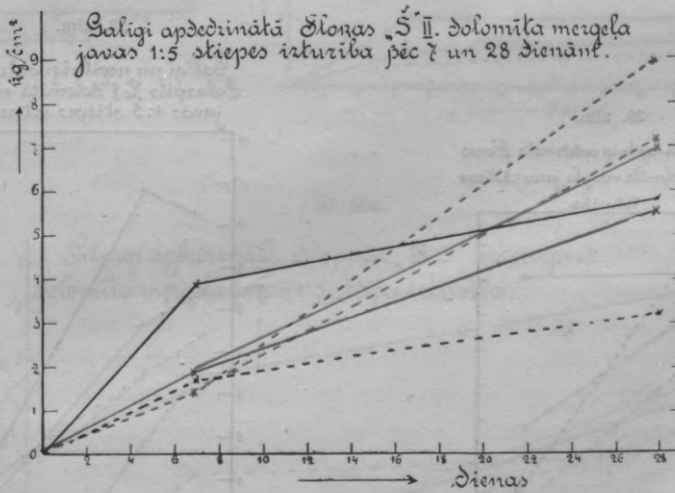 Galīgi apdedzinātā Slokas „Š” II. dolomīta merģeļa
javas 1:5 stiepes izturība pēc 7 un 28 dienām.
kg/cm²
9
8
7
6
5
4
3
2
1
0
2 4 6 8 10 12 14 16 18 20 22 24 26 28
dienas